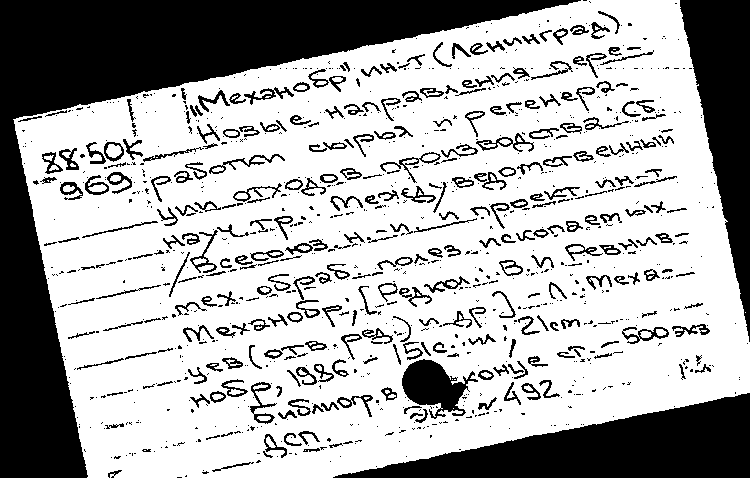 „Механобр", ин-т (Ленинград).
Новые направления пере-
88.50К
969
работки сырья и регенера-
ции отходов производства: Сб.
науч. тр.: Межведомственный
/ Всесоюз. н.-и. и проект. ин-т
мех. обраб. полез. ископаемых
Механобр; [Редкол.: В.И. Ревнив-
цев (отв. ред.) и др.] - Л.: Меха-
нобр, 1986. - 151с.: ил.; 21cm.
Библиогр. в конце ст. - 500 экз
ДСП. Экз. № 492.